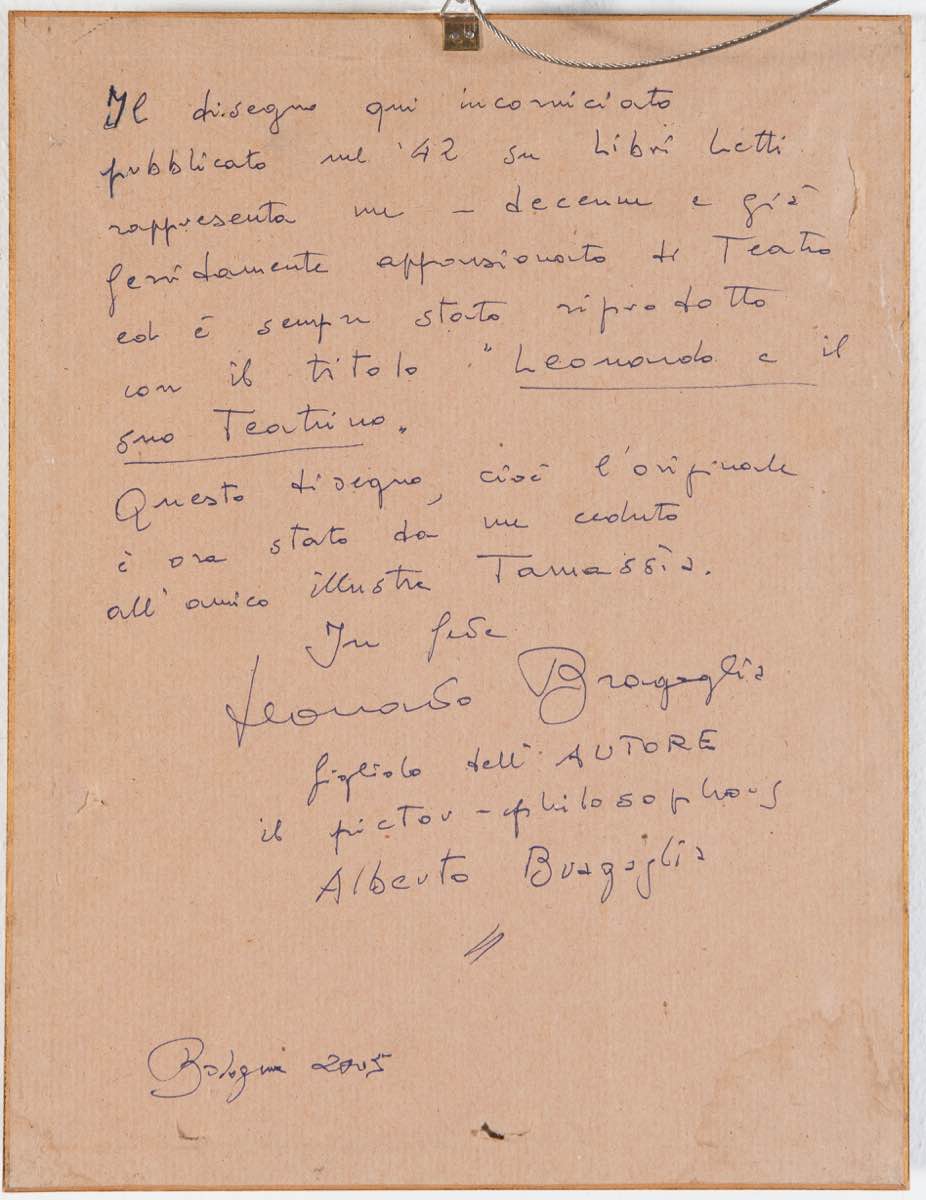 Il disegno qui incorniciato
pubblicato nel '42 su Libri Letti
rappresenta me – decenne e già
fervidamente appassionato di Teatro
ed è sempre stato riprodotto
con il titolo "Leonardo e il
suo Teatrino"
Questo disegno, cioè l'originale
è ora stato da me ceduto
all'amico illustre Tamassia.
In fede
Leonardo Bragaglia
figliolo dell'AUTORE
il pictor - philosophous
Alberto Bragaglia
Bologna 2005